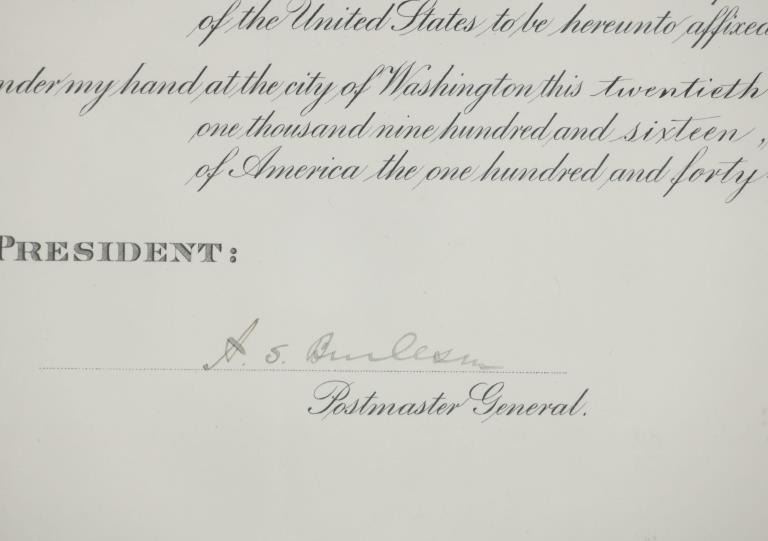 of the United States to be hereunto affixed
nder my hand at the city of Washington this twentieth
one thousand nine hundred and sixteen,
of America the one hundred and forty-
PRESIDENT:
A. S. Burleson
Postmaster General.